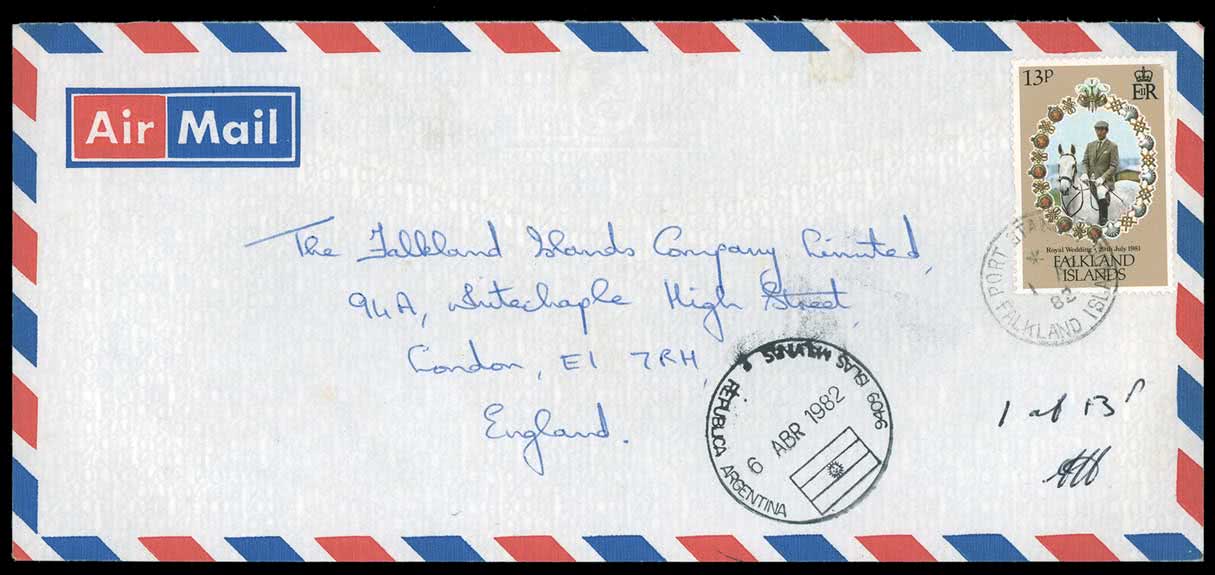 Air Mail
13P
EIIR
Royal Wedding · 29th July 1981
FALKLAND
ISLANDS
PORT STA
FALKLAND ISLA
1
82
The Falkland Islands Company Limited,
94A, Whitechaple High Street,
London, E1 7RH,
England.
9409 ISLAS MALVINAS
REPUBLICA ARGENTINA
6 ABR 1982
1 at 13P